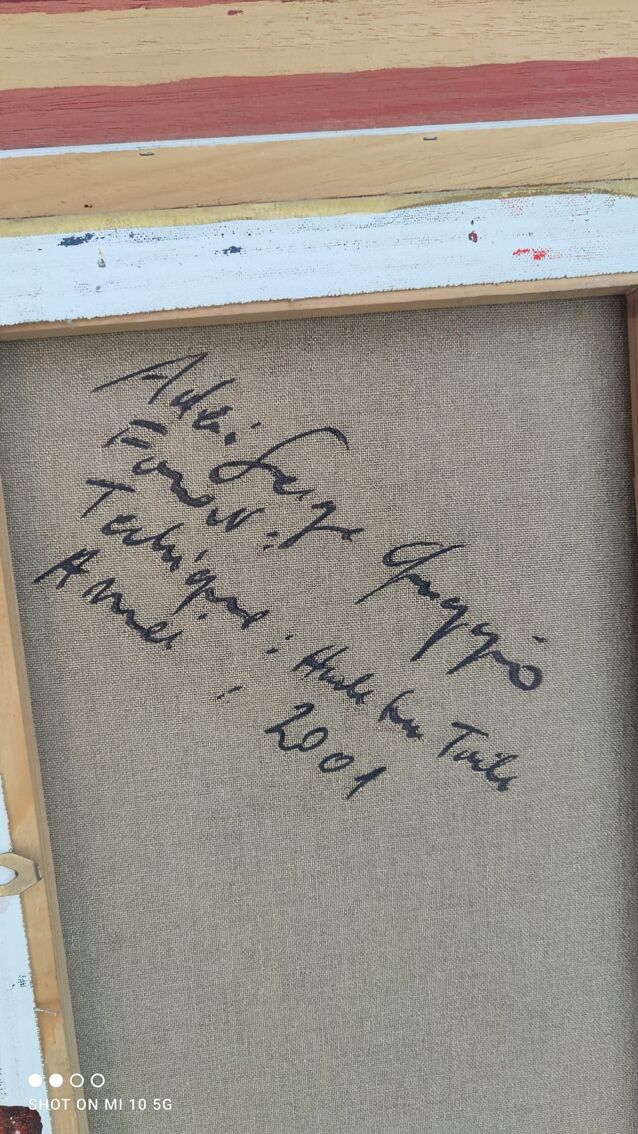 Serge
Format :
Technique : Huile sur Toile
Année : 2001
SHOT ON MI 10 5G